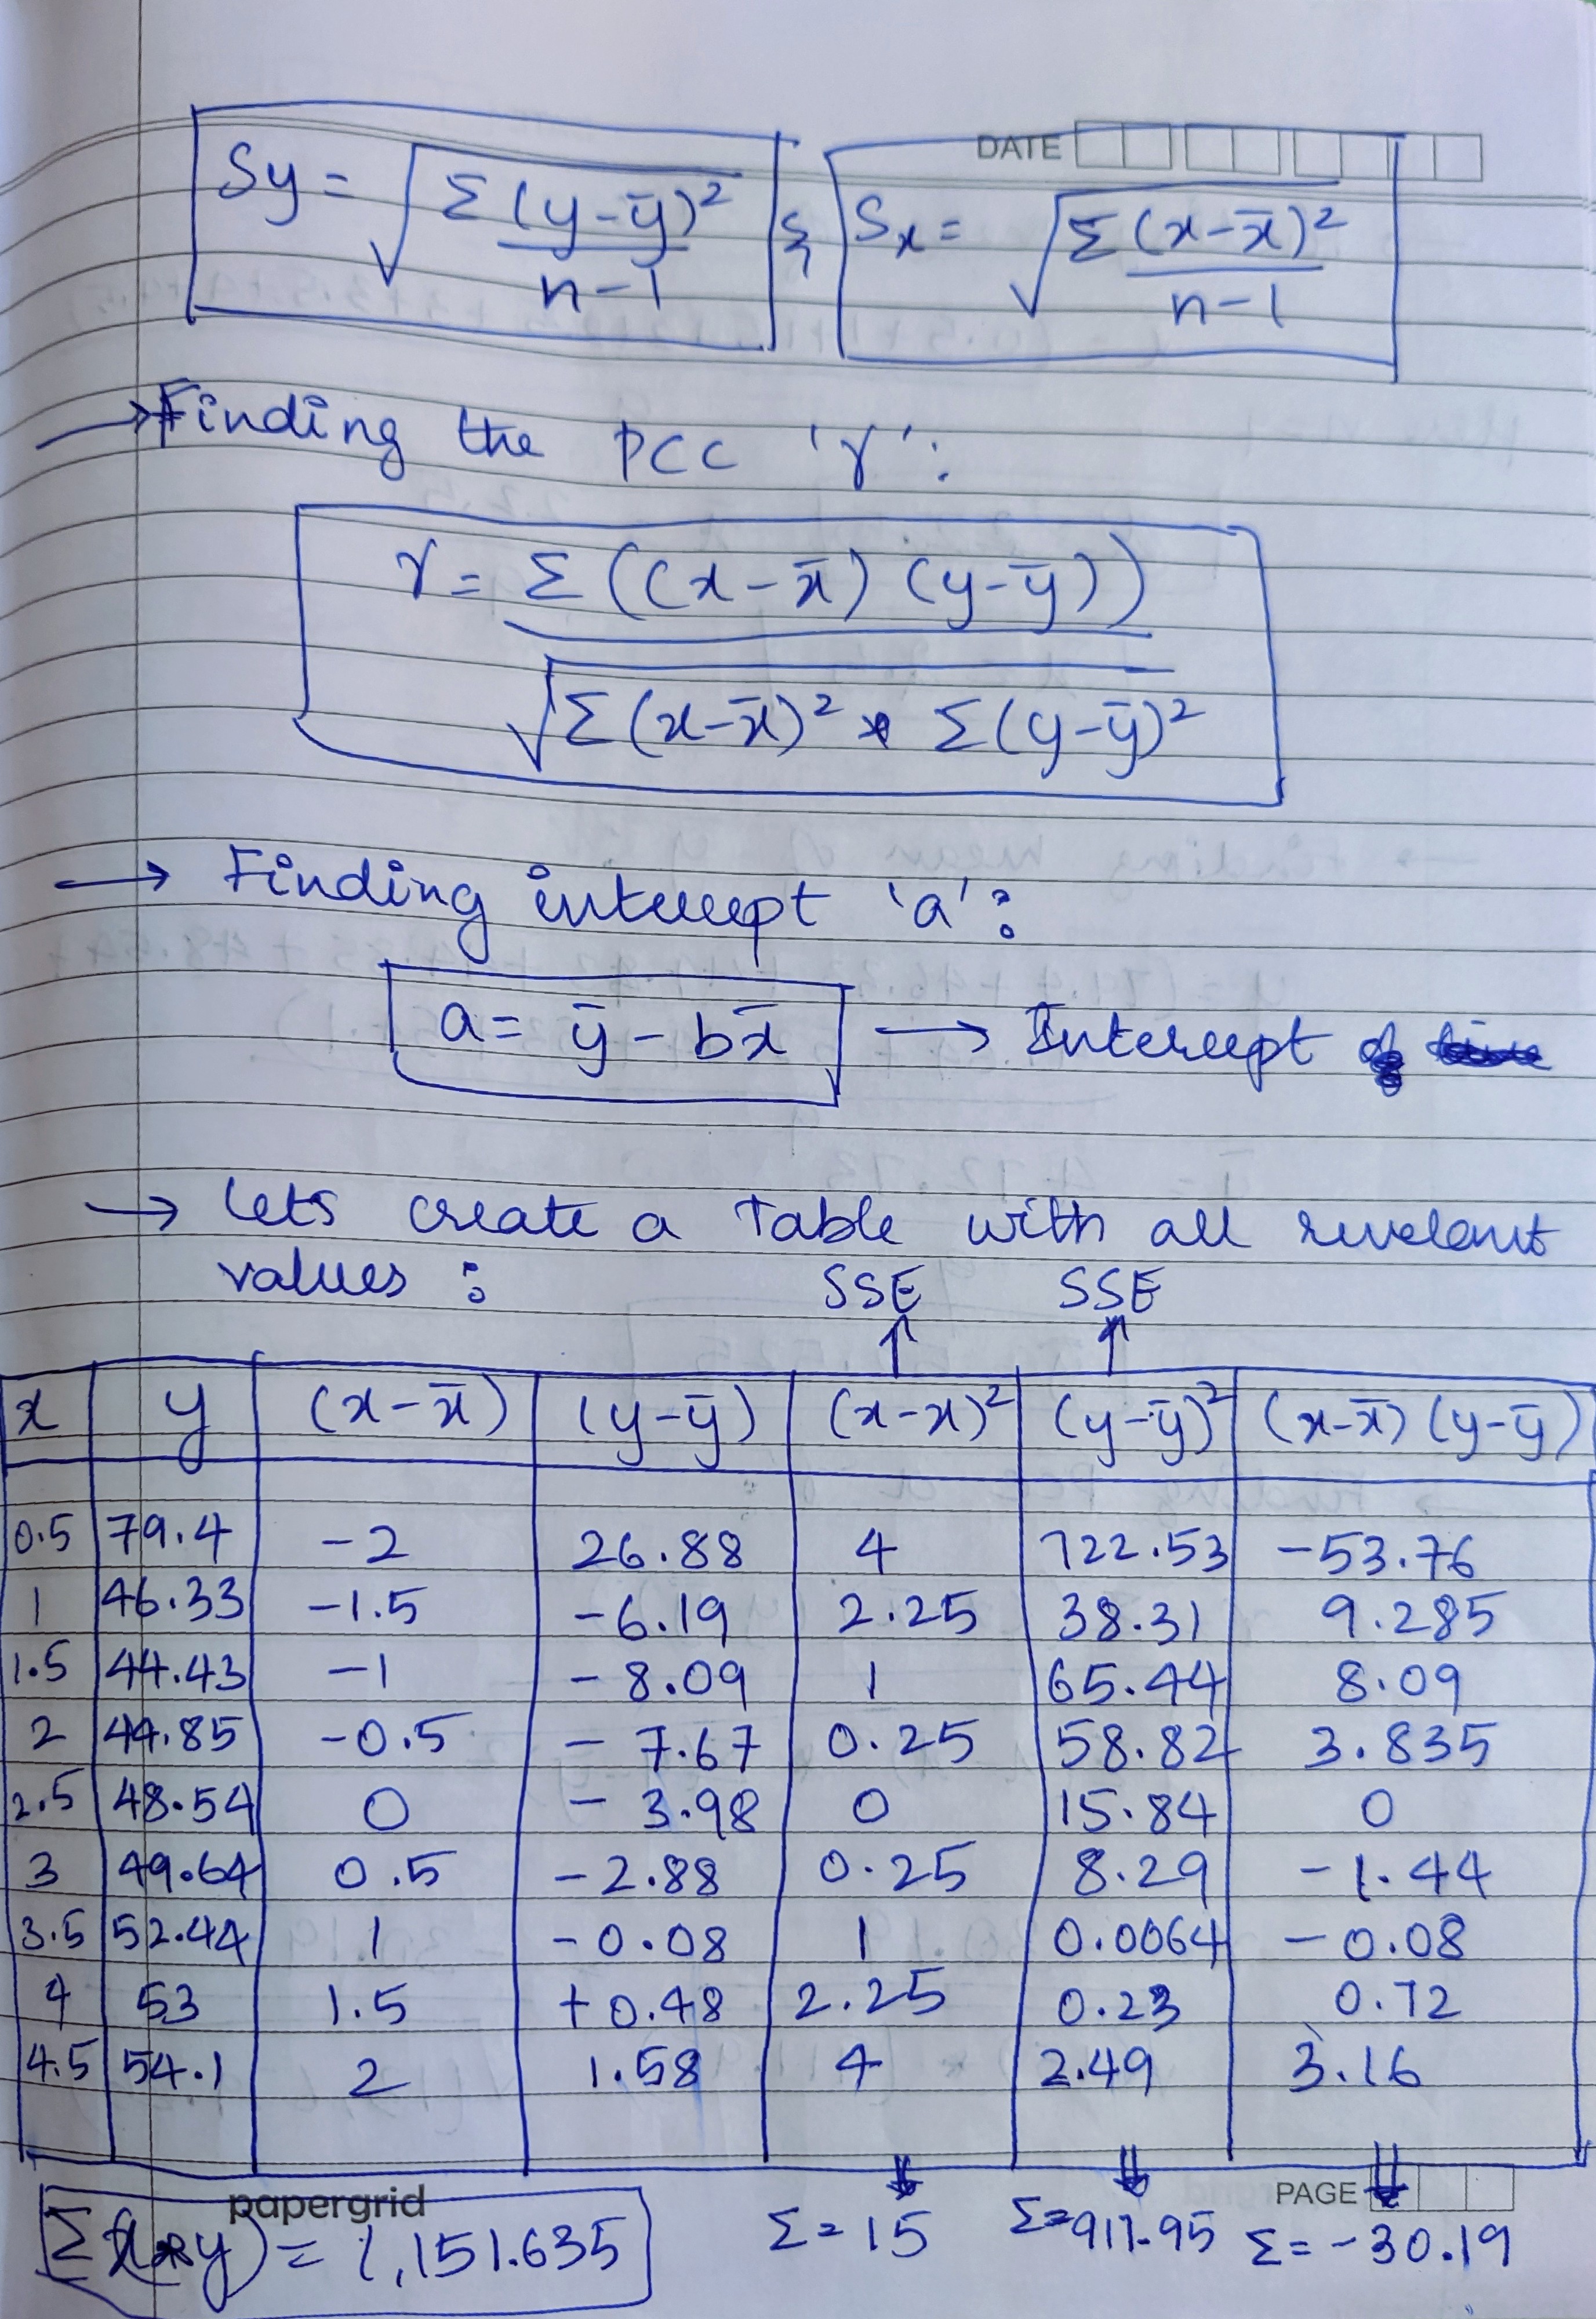 DATE
Sy = √ Σ(y-ȳ)² / n-1 & Sx = √ Σ(x-x̄)² / n-1
→ Finding the PCC 'r':
r = Σ((x-x̄)(y-ȳ))
√ Σ(x-x̄)² * Σ(y-ȳ)²
→ Finding intercept 'a':
a = ȳ - bx̄ → Intercept
→ lets create a Table with all revelant
values : SSE SSE
x y (x-x̄) (y-ȳ) (x-x)² (y-ȳ)² (x-x̄)(y-ȳ)
0.5 79.4 -2 26.88 4 722.53 -53.76
1 46.33 -1.5 -6.19 2.25 38.31 9.285
1.5 44.43 -1 -8.09 1 65.44 8.09
2 44.85 -0.5 -7.67 0.25 58.82 3.835
2.5 48.54 0 -3.98 0 15.84 0
3 49.64 0.5 -2.88 0.25 8.29 -1.44
3.5 52.44 1 -0.08 1 0.0064 -0.08
4 53 1.5 +0.48 2.25 0.23 0.72
4.5 54.1 2 1.58 4 2.49 3.16
papergrid PAGE
Σ(x*y) = 1,151.635 Σ=15 Σ=911.95 Σ=-30.19